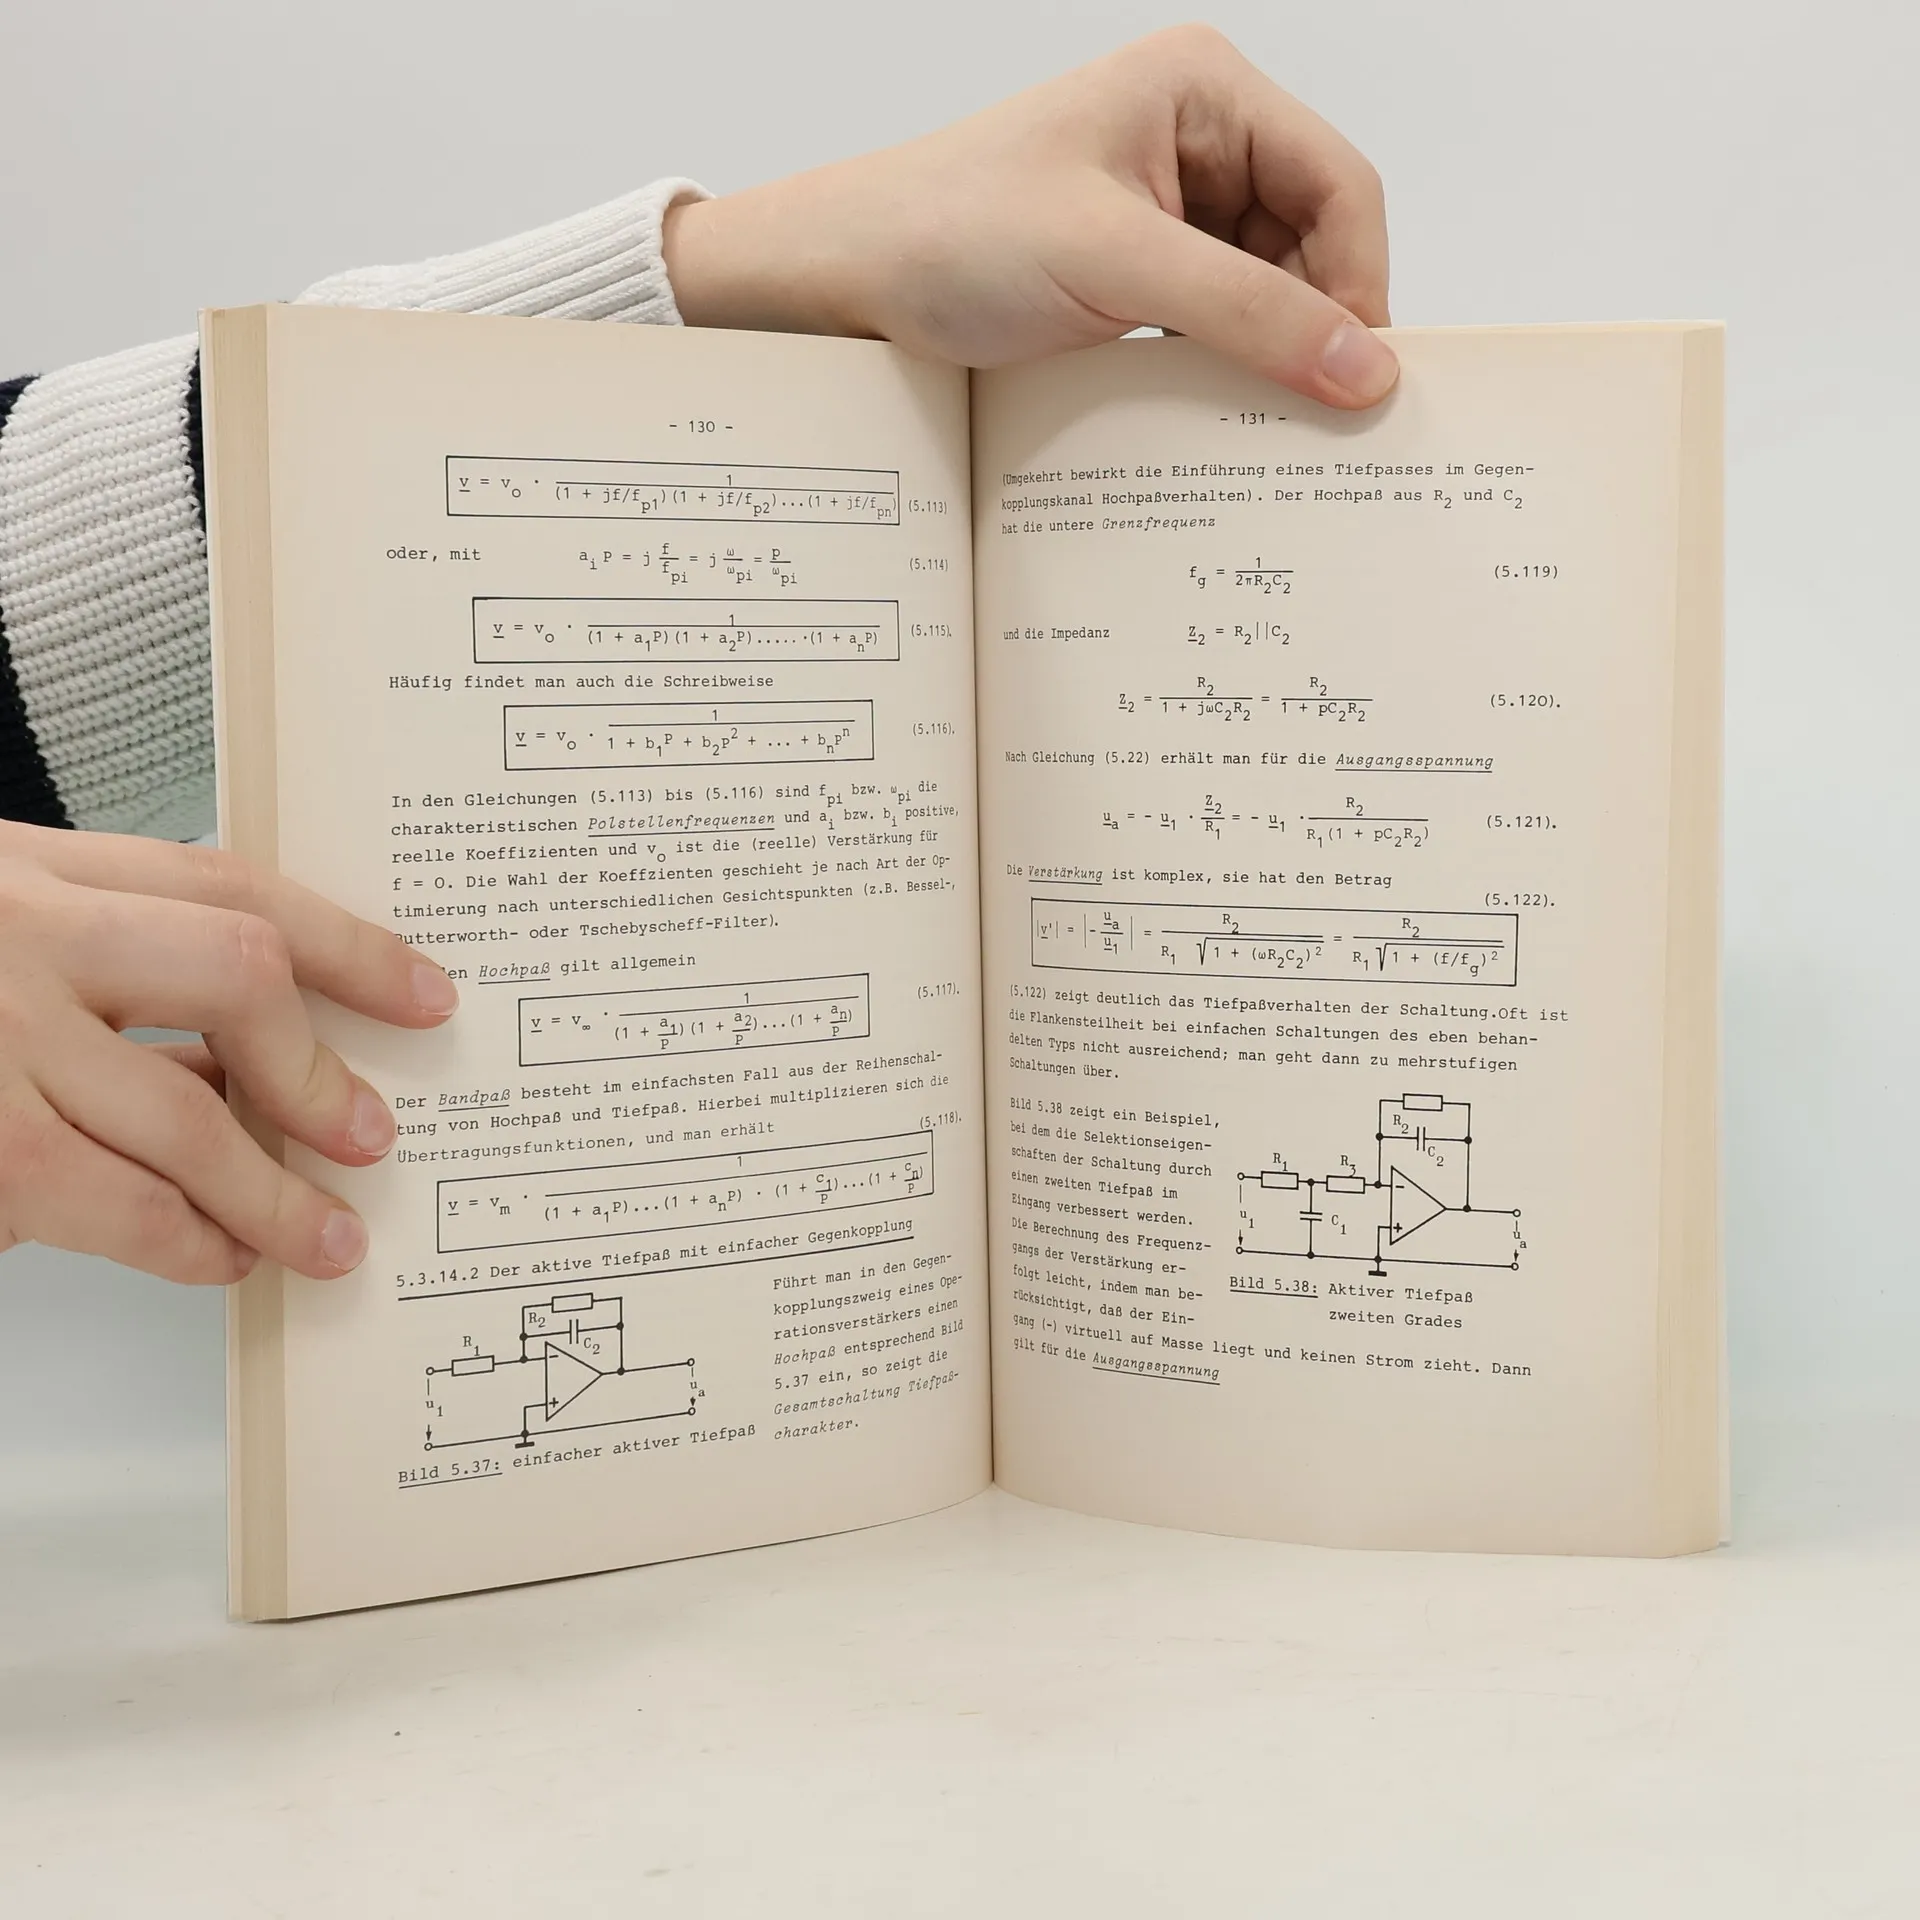 - 130 -
v = v_o · 1 / ((1 + jf/f_p1)(1 + jf/f_p2)...(1 + jf/f_pn)) (5.113)
oder, mit a_i P = j f/f_pi = j ω/ω_pi = p/ω_pi (5.114)
v = v_o · 1 / ((1 + a_1P)(1 + a_2P).....·(1 + a_nP)) (5.115).
Häufig findet man auch die Schreibweise
v = v_o · 1 / (1 + b_1P + b_2P² + ... + b_nPⁿ) (5.116).
In den Gleichungen (5.113) bis (5.116) sind f_pi bzw. ω_pi die
charakteristischen Polstellenfrequenzen und a_i bzw. b_i positive,
reelle Koeffizienten und v_o ist die (reelle) Verstärkung für
f = O. Die Wahl der Koeffzienten geschieht je nach Art der Op-
timierung nach unterschiedlichen Gesichtspunkten (z.B. Bessel-,
Butterworth- oder Tschebyscheff-Filter).
Hochpaß gilt allgemein
v = v_∞ · 1 / ((1 + a_1/P)(1 + a_2/P)...(1 + a_n/P)) (5.117).
Der Bandpaß besteht im einfachsten Fall aus der Reihenschal-
tung von Hochpaß und Tiefpaß. Hierbei multiplizieren sich die
Übertragungsfunktionen, und man erhält (5.118).
v = v_m · 1 / ((1 + a_1P)...(1 + a_nP) · (1 + c_1/P)...(1 + c_n/P))
5.3.14.2 Der aktive Tiefpaß mit einfacher Gegenkopplung
R_2
C_2
R_1
-
+
u_1
u_a
Bild 5.37: einfacher aktiver Tiefpaß
Führt man in den Gegen-
kopplungszweig eines Ope-
rationsverstärkers einen
Hochpaß entsprechend Bild
5.37 ein, so zeigt die
Gesamtschaltung Tiefpaß-
charakter.
- 131 -
(Umgekehrt bewirkt die Einführung eines Tiefpasses im Gegen-
kopplungskanal Hochpaßverhalten). Der Hochpaß aus R_2 und C_2
hat die untere Grenzfrequenz
f_g = 1 / (2πR_2C_2) (5.119)
und die Impedanz Z_2 = R_2||C_2
Z_2 = R_2 / (1 + jωC_2R_2) = R_2 / (1 + pC_2R_2) (5.120).
Nach Gleichung (5.22) erhält man für die Ausgangsspannung
u_a = - u_1 · Z_2/R_1 = - u_1 · R_2 / (R_1(1 + pC_2R_2)) (5.121).
Die Verstärkung ist komplex, sie hat den Betrag
(5.122).
|v'| = |- u_a/u_1| = R_2 / (R_1 √(1 + (ωR_2C_2)²)) = R_2 / (R_1 √(1 + (f/f_g)²))
(5.122) zeigt deutlich das Tiefpaßverhalten der Schaltung.Oft ist
die Flankensteilheit bei einfachen Schaltungen des eben behan-
delten Typs nicht ausreichend; man geht dann zu mehrstufigen
Schaltungen über.
Bild 5.38 zeigt ein Beispiel,
bei dem die Selektionseigen-
schaften der Schaltung durch
einen zweiten Tiefpaß im
Eingang verbessert werden.
Die Berechnung des Frequenz-
gangs der Verstärkung er-
folgt leicht, indem man be-
rücksichtigt, daß der Ein-
gang (-) virtuell auf Masse liegt und keinen Strom zieht. Dann
gilt für die Ausgangsspannung
R_2
C_2
R_1
R_3
-
+
C_1
u_1
u_a
Bild 5.38: Aktiver Tiefpaß
zweiten Grades